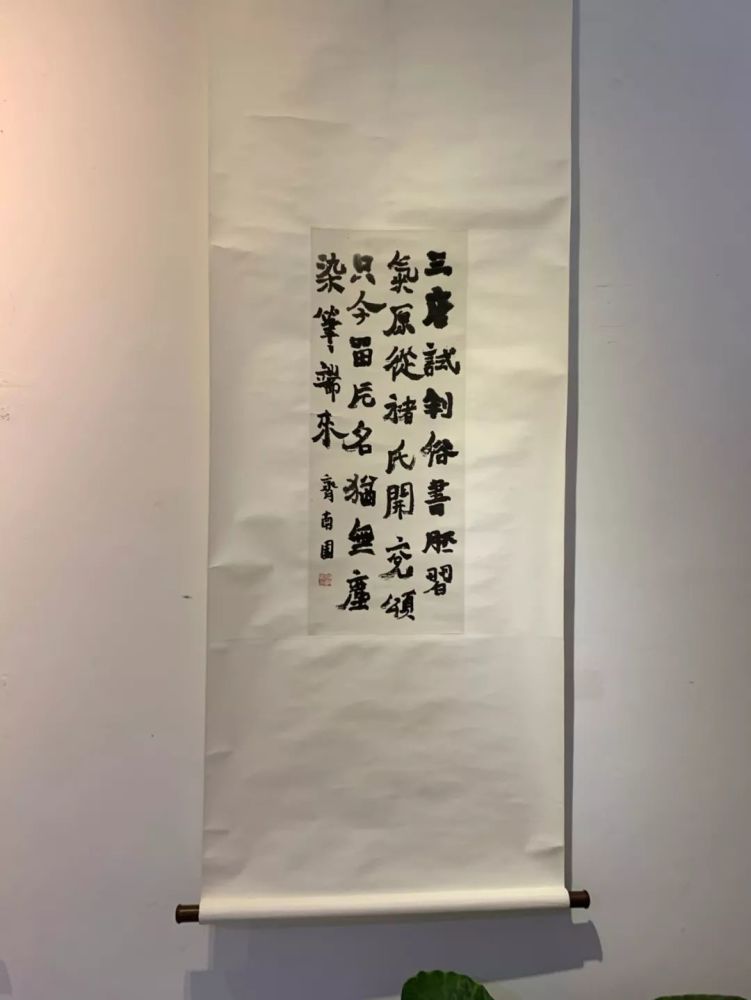 三唐試判俗書胚習
氣原從褚氏開兗頌
只今留片名猶無塵
染筆端來 南園